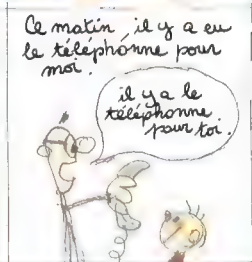 Ce matin, il y a eu
le téléphonne pour
moi.
il y a le
téléphonne
pour toi.